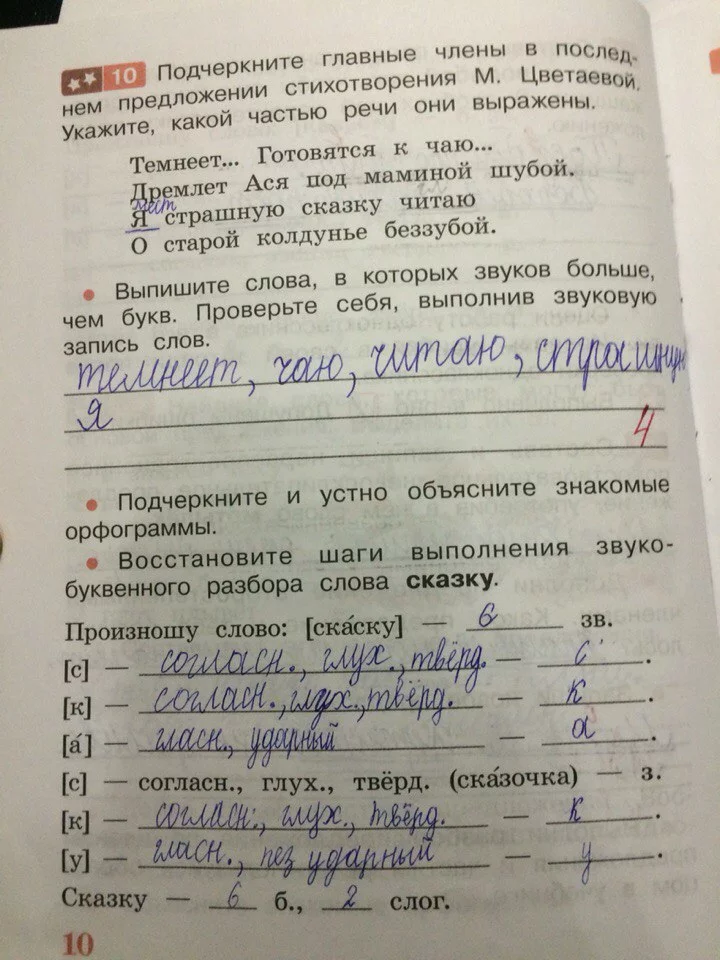 10 Подчеркните главные члены в послед-
нем предложении стихотворения М. Цветаевой.
Укажите, какой частью речи они выражены.
Темнеет... Готовятся к чаю...
Дремлет Ася под маминой шубой.
мест
Я страшную сказку читаю
О старой колдунье беззубой.
• Выпишите слова, в которых звуков больше,
чем букв. Проверьте себя, выполнив звуковую
запись слов.
темнеет, чаю, читаю, страшную
Я
4
• Подчеркните и устно объясните знакомые
орфограммы.
• Восстановите шаги выполнения звуко-
буквенного разбора слова сказку.
Произношу слово: [ска́ску] — 6 зв.
[с] — согласн., глух., твёрд. — с.
[к] — согласн., глух., твёрд. — к.
[а́] — гласн., ударный — а.
[с] — согласн., глух., твёрд. (ска́зочка) — з.
[к] — согласн., глух., твёрд. — к.
[у] — гласн., пез ударный — у.
Сказку — 6 б., 2 слог.
10